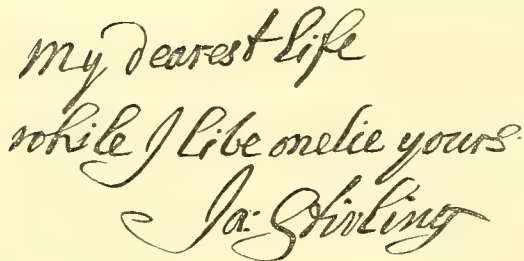 my dearest life
while I live onelie yours.
Ja: Stirling